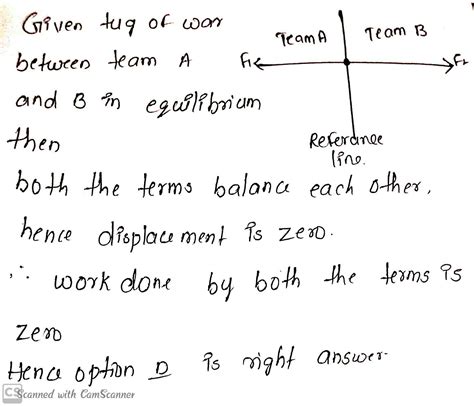 Given tug of war
between team A
and B in equilibrium
then
Team A
Team B
F1
F2
Referance
line.
both the terms balance each other,
hence displacement is zero.
∴ work done by both the terms is
zero
Hence option D is right answer.
CS Scanned with CamScanner